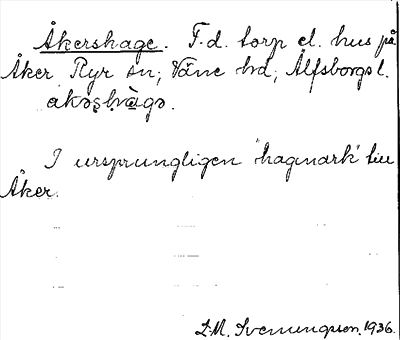 Åkershage. F.d. torp el. hus på
Åker Ryr sn, Väne hd, Älfsborgs l.
åkəṣhàgə.
I ursprungligen 'hagmark' till
Åker.
L.M. Svenungsson. 1936.